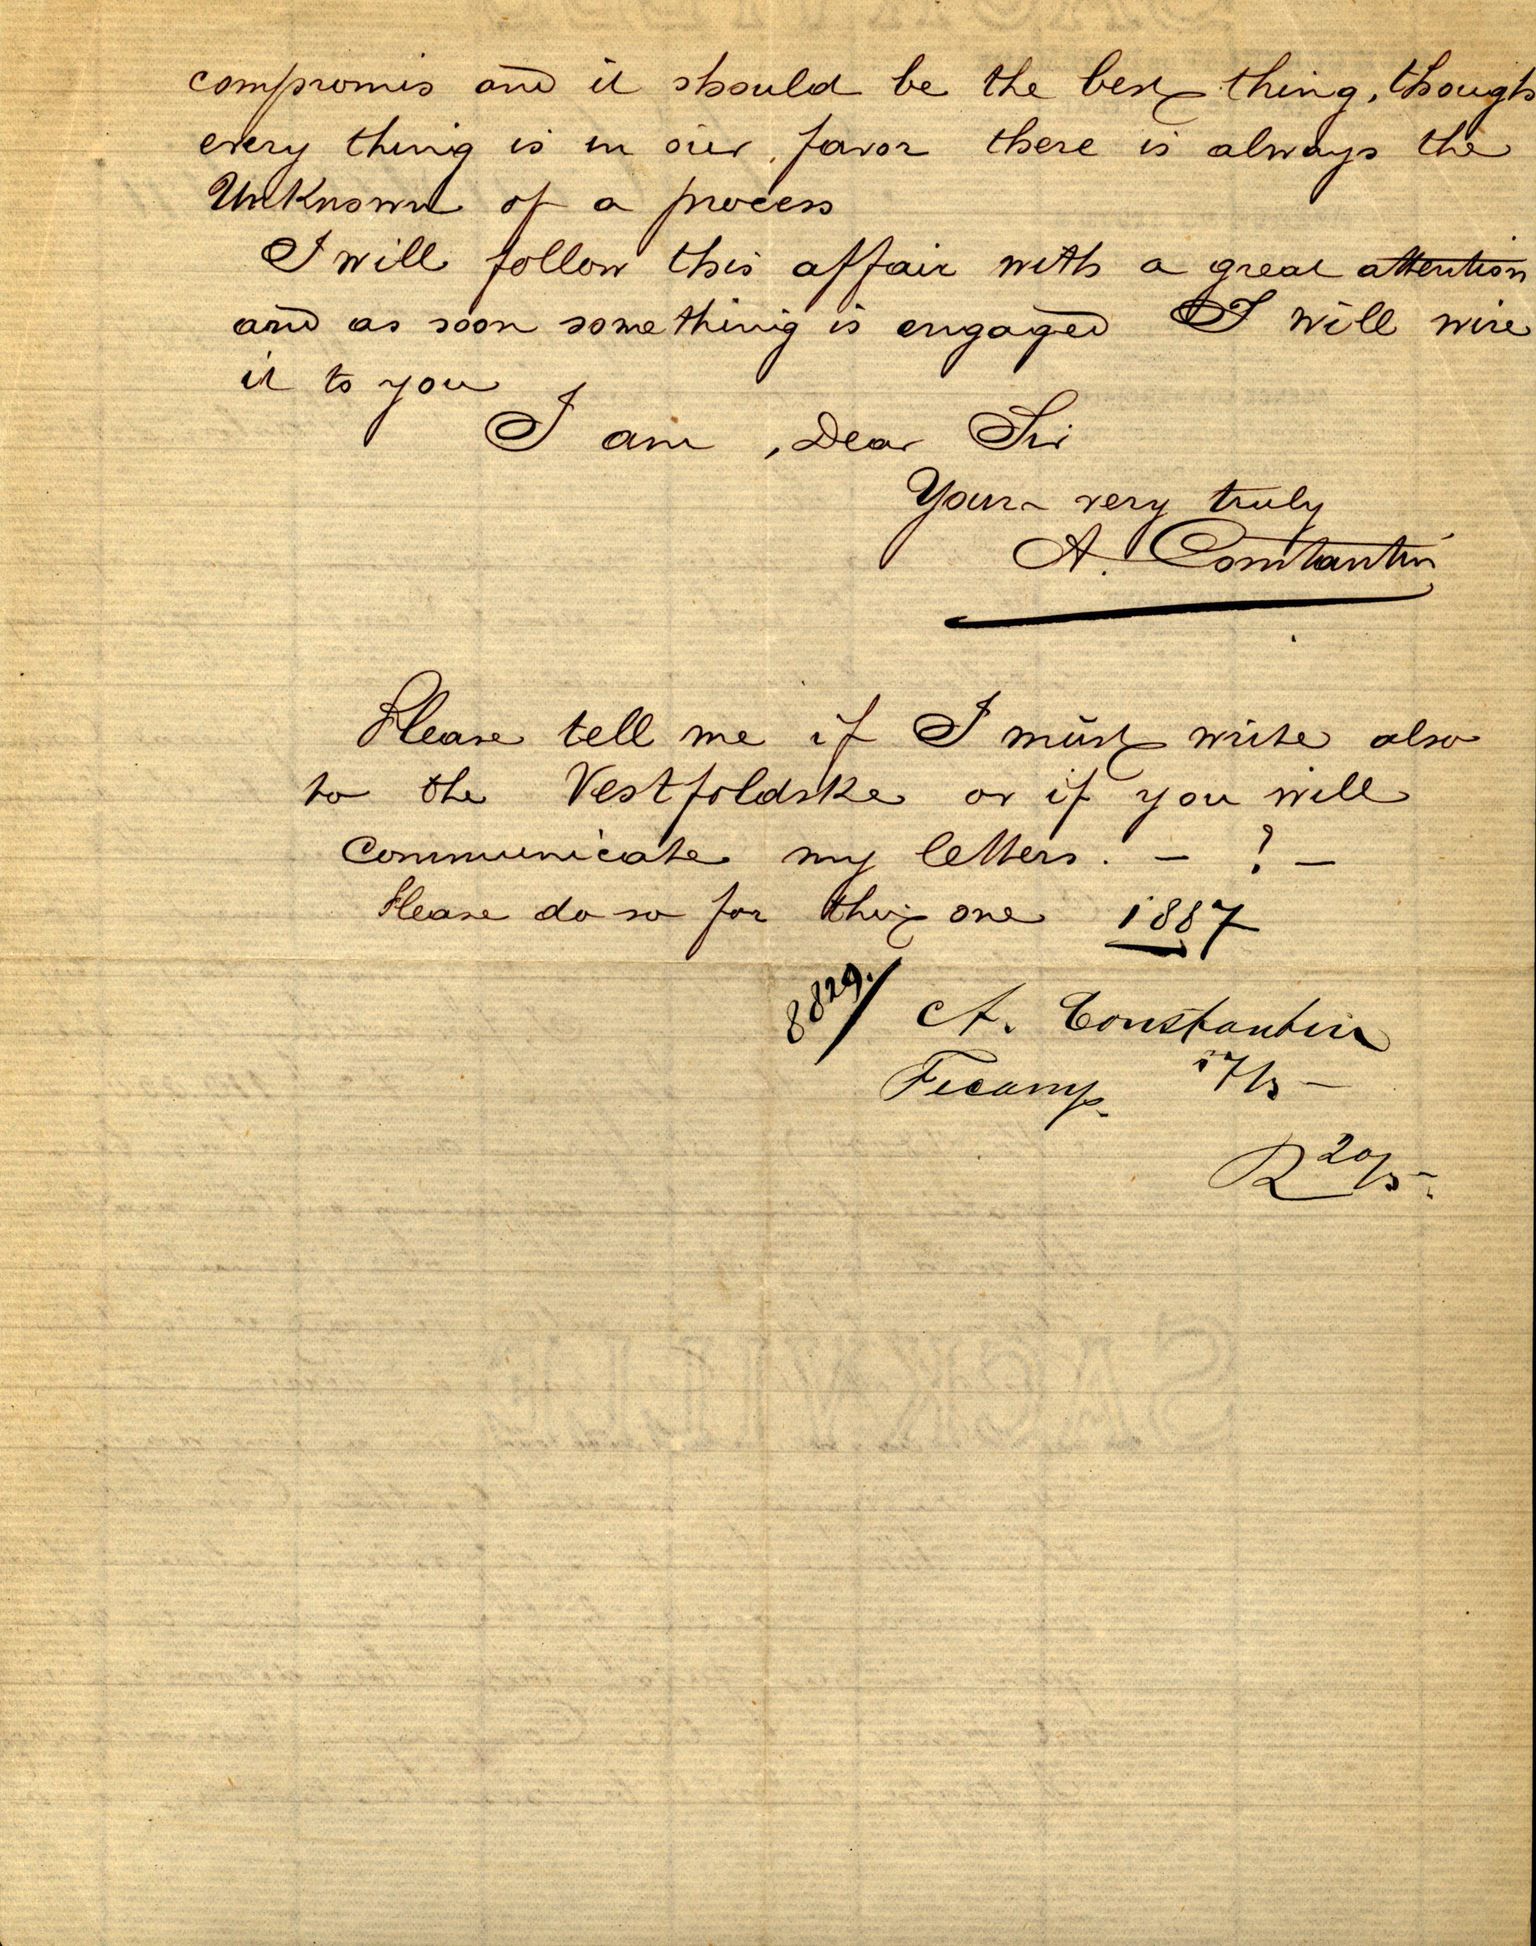 compromis and it should be the best thing, though
every thing is in our favor there is always the
Unknown of a process
I will follow this affair with a great attention
and as soon something is engaged I will wire
it to you
I am, Dear Sir
Yours very truly
A. Constantin
Please tell me if I must write also
to the Vestfoldske or if you will
communicate my letters. – ? –
Please do so for this one 1887
8829.
A. Constantin
Fecamp. 17/5 –
R 20/5 –.
SACKVILLE